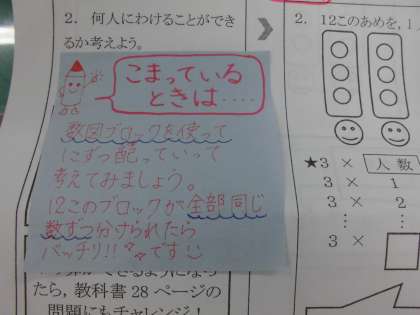 2. 何人にわけることができ
るか考えよう。
こまっている
ときは····
数図ブロックを使って
に ずつ配っていって
考えてみましょう。
12このブロックが全部同じ
数ずつ分けられたら
バッチリ!!です
たら, 教科書 28 ページの
問題にもチャレンジ!
2. 12このあめを, 1
★3 × 人数
3 × 1
3 × 2
⋮ ⋮
3 ×